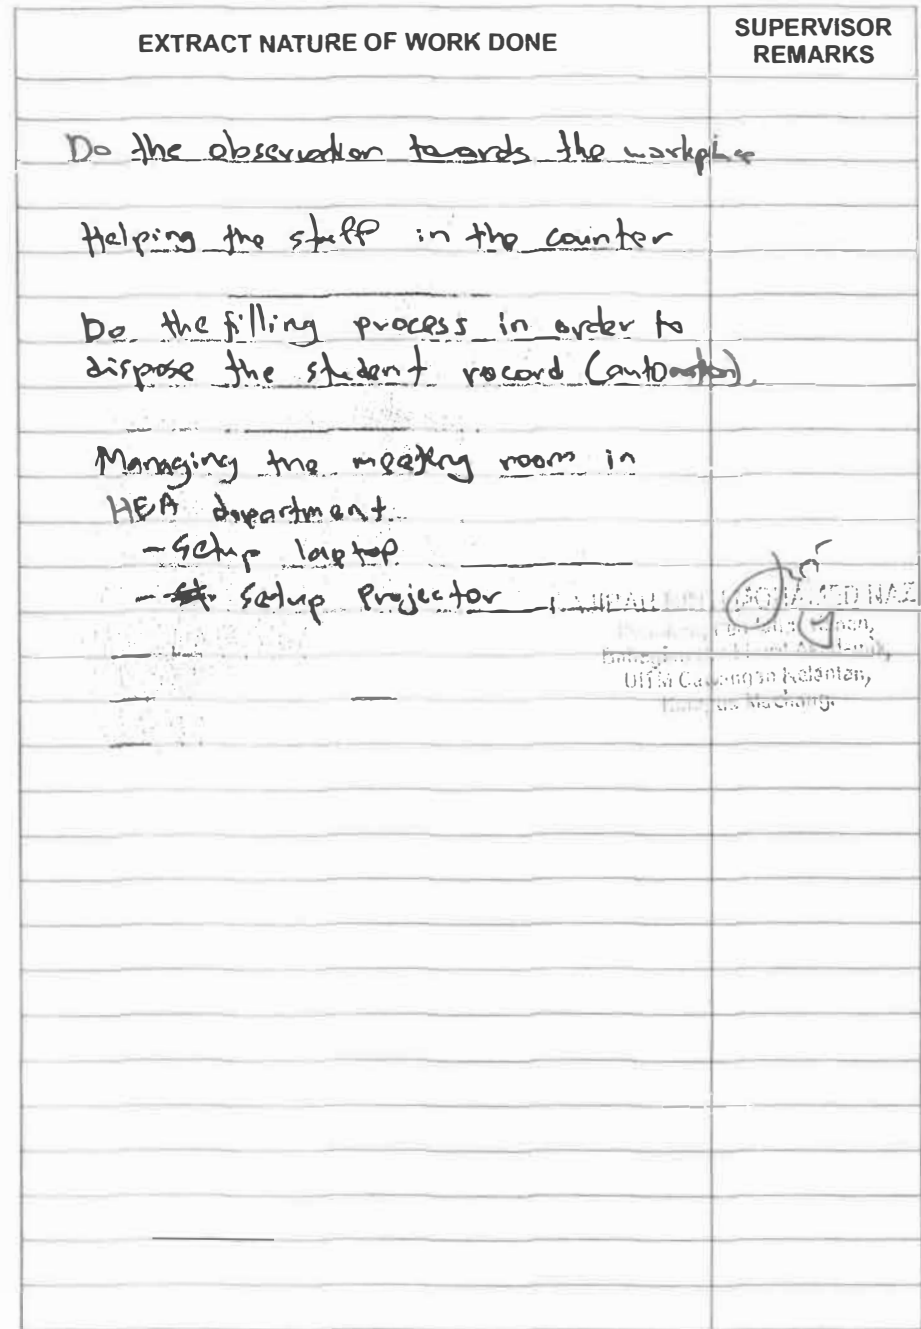 EXTRACT NATURE OF WORK DONE
SUPERVISOR
REMARKS
Do the observation towards the workplace
Helping the staff in the counter
Do the filling process in order to
dispose the student record (automation)
Managing the meeting room in
HEA department.
- Setup laptop
- Setup Projector
MOHAMED NAZ
UiTM Cawangan Kelantan,
Machang.